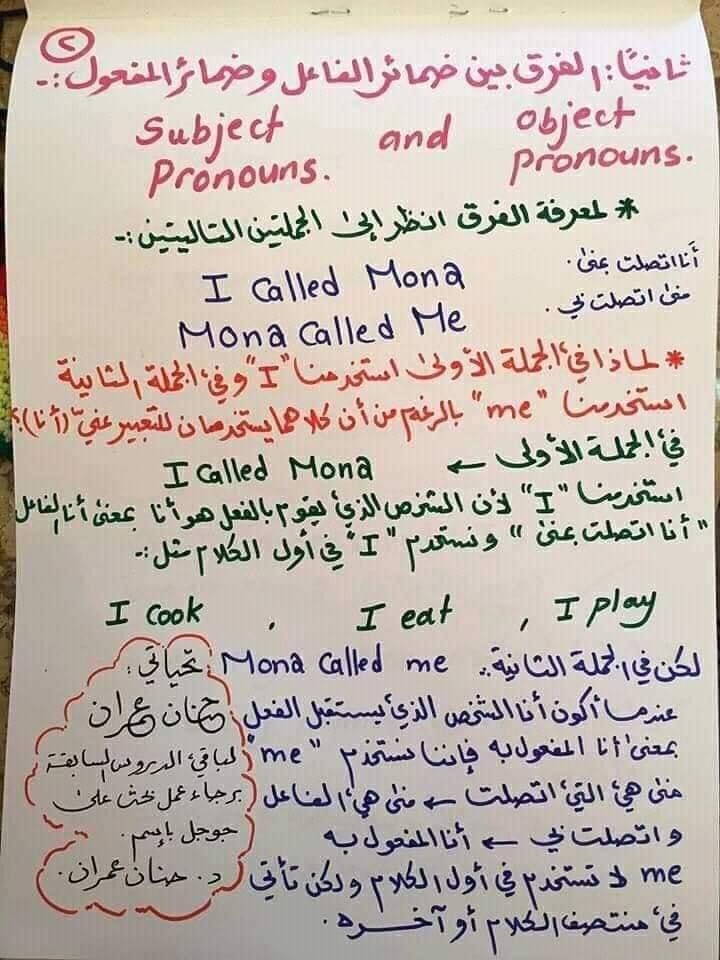 ٢
ثانيًا: الفرق بين ضمائر الفاعل وضمائر المفعول :-
Subject Pronouns. and object pronouns.
* لمعرفة الفرق انظر إلى الجملتين التاليتين :-
I Called Mona
أنا اتصلت بمنى.
Mona Called Me
منى اتصلت بي.
* لماذا في الجملة الأولى استخدمنا "I" وفي الجملة الثانية
استخدمنا "me" بالرغم من أن كلاهما يستخدمان للتعبير عني (أنا)؟
في الجملة الأولى ← I Called Mona
استخدمنا "I" لأن الشخص الذي يقوم بالفعل هو أنا بمعنى أنا الفاعل
"أنا اتصلت بمنى" ونستخدم "I" في أول الكلام مثل :-
I cook , I eat , I play
لكن في الجملة الثانية.. Mona Called me
عندما أكون أنا الشخص الذي يستقبل الفعل
بمعنى أنا المفعول به فإننا نستخدم "me"
منى هي التي اتصلت ← منى هي الفاعل
واتصلت بي ← أنا المفعول به
me لا تستخدم في أول الكلام ولكن تأتي
في منتصف الكلام أو آخره.
تحياتي:
حنان عمران
لباقي الدروس السابقة
برجاء عمل بحث على
جوجل بإسم.
د. حنان عمران.